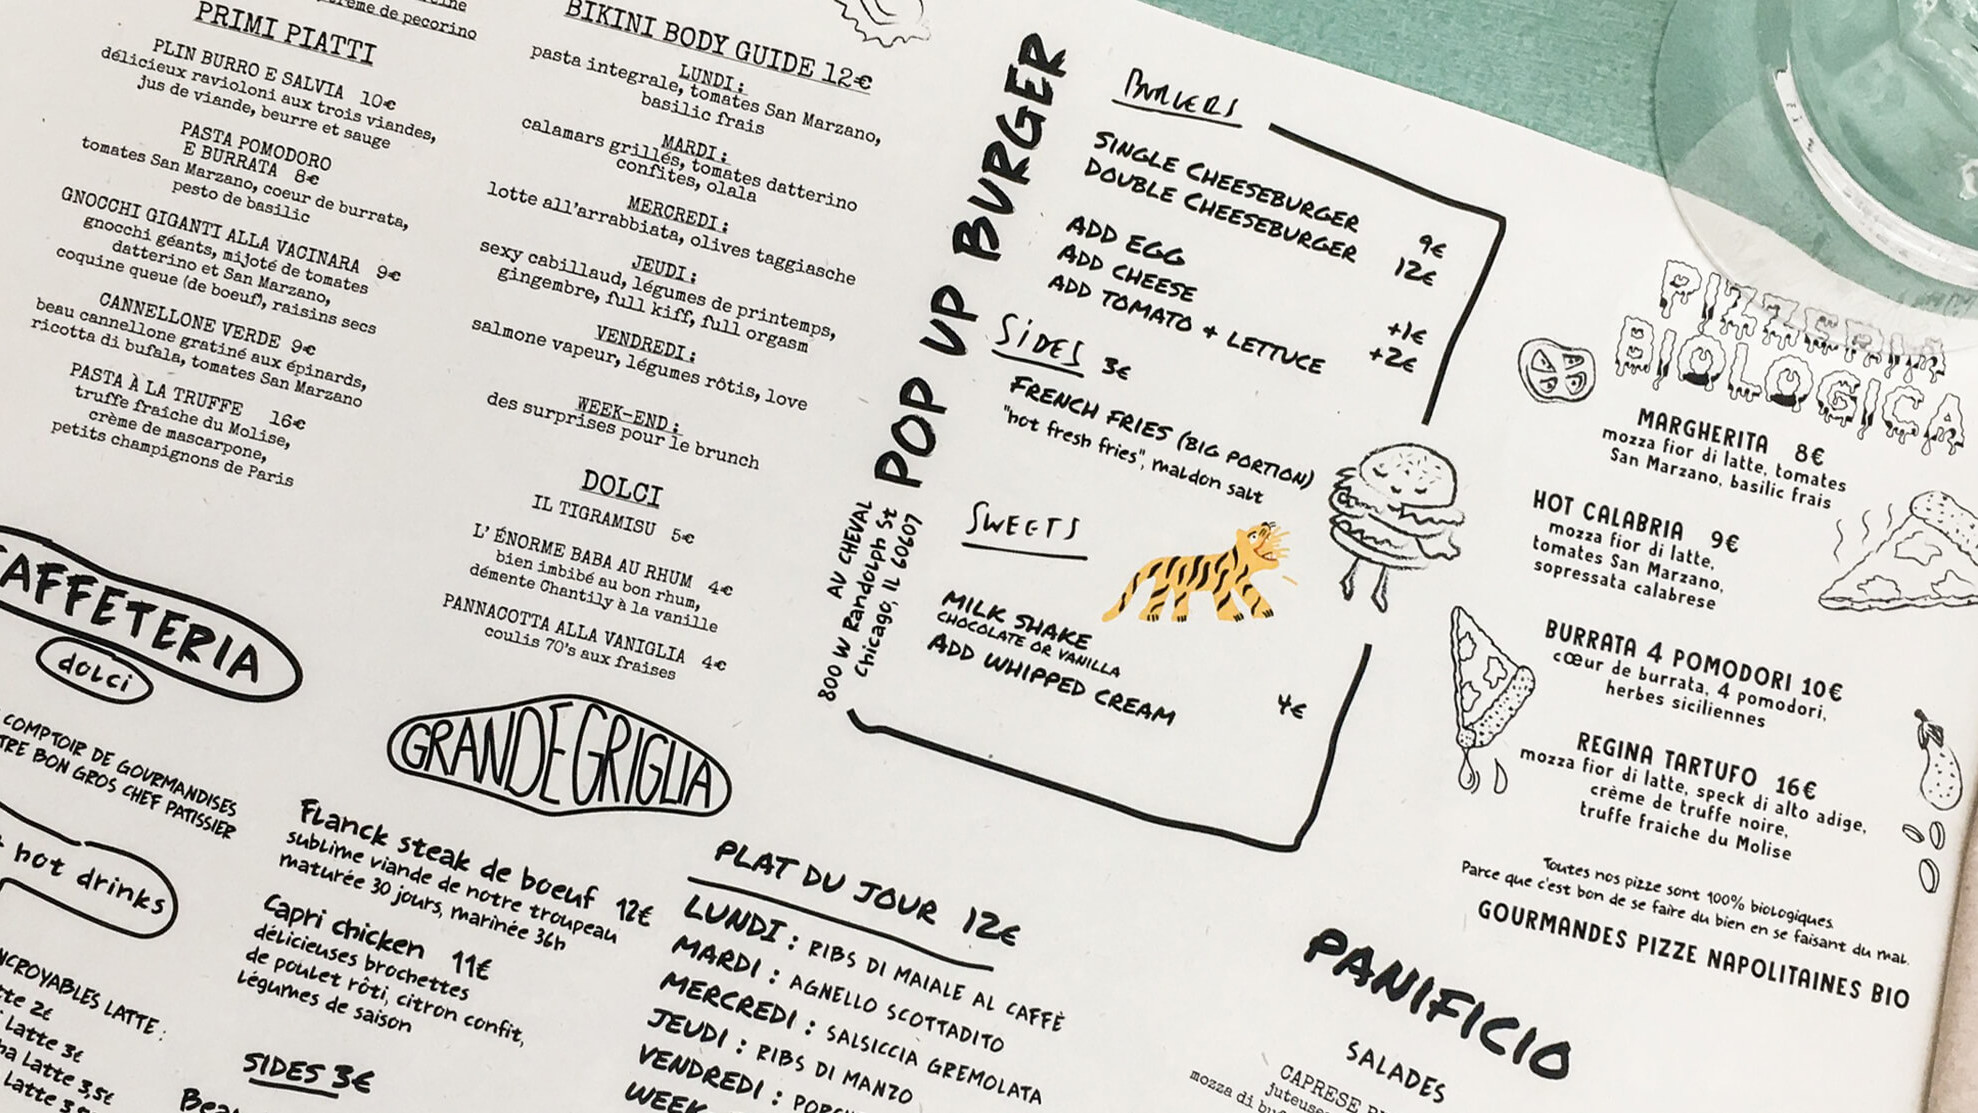 crème de pecorino
PRIMI PIATTI
PLIN BURRO E SALVIA 10€
délicieux ravioloni aux trois viandes,
jus de viande, beurre et sauge
PASTA POMODORO
E BURRATA 8€
tomates San Marzano, coeur de burrata,
pesto de basilic
GNOCCHI GIGANTI ALLA VACINARA 9€
gnocchi géants, mijoté de tomates
datterino et San Marzano,
coquine queue (de boeuf), raisins secs
CANNELLONE VERDE 9€
beau cannellone gratiné aux épinards,
ricotta di bufala, tomates San Marzano
PASTA À LA TRUFFE 16€
truffe fraiche du Molise,
crème de mascarpone,
petits champignons de Paris
BIKINI BODY GUIDE 12€
LUNDI:
pasta integrale, tomates San Marzano,
basilic frais
MARDI:
calamars grillés, tomates datterino
confites, olala
MERCREDI:
lotte all'arrabbiata, olives taggiasche
JEUDI:
sexy cabillaud, légumes de printemps,
gingembre, full kiff, full orgasm
VENDREDI:
salmone vapeur, légumes rôtis, love
WEEK-END:
des surprises pour le brunch
DOLCI
IL TIGRAMISU 5€
L'ÉNORME BABA AU RHUM 4€
bien imbibé au bon rhum,
démente Chantily à la vanille
PANNACOTTA ALLA VANIGLIA 4€
coulis 70's aux fraises
POP UP BURGER
AU CHEVAL
800 W Randolph St
Chicago, IL 60607
BURGERS
SINGLE CHEESEBURGER 9€
DOUBLE CHEESEBURGER 12€
ADD EGG
ADD CHEESE +1€
ADD TOMATO + LETTUCE +2€
SIDES 3€
FRENCH FRIES (BIG PORTION)
"hot fresh fries", maldon salt
SWEETS
MILK SHAKE 4€
CHOCOLATE OR VANILLA
ADD WHIPPED CREAM
PIZZERIA
BIOLOGICA
MARGHERITA 8€
mozza fior di latte, tomates
San Marzano, basilic frais
HOT CALABRIA 9€
mozza fior di latte,
tomates San Marzano,
sopressata calabrese
BURRATA 4 POMODORI 10€
cœur de burrata, 4 pomodori,
herbes siciliennes
REGINA TARTUFO 16€
mozza fior di latte, speck di alto adige,
crème de truffe noire,
truffe fraiche du Molise
Toutes nos pizze sont 100% biologiques.
Parce que c'est bon de se faire du bien en se faisant du mal.
GOURMANDES PIZZE NAPOLITAINES BIO
PANIFICIO
SALADES
CAPRESE
juteuses
mozza di
CAFFETERIA
dolci
COMPTOIR DE GOURMANDISES
BON GROS CHEF PATISSIER
hot drinks
LATTE:
2€
Latte 3€
Latte 3,5€
Latte
GRANDE GRIGLIA
Flanck steak de boeuf 12€
sublime viande de notre troupeau
maturée 30 jours, marinée 36h
Capri chicken 11€
délicieuses brochettes
de poulet rôti, citron confit,
légumes de saison
SIDES 3€
PLAT DU JOUR 12€
LUNDI: RIBS DI MAIALE AL CAFFÈ
MARDI: AGNELLO SCOTTADITO
MERCREDI: SALSICCIA GREMOLATA
JEUDI: RIBS DI MANZO
VENDREDI:
WEEK